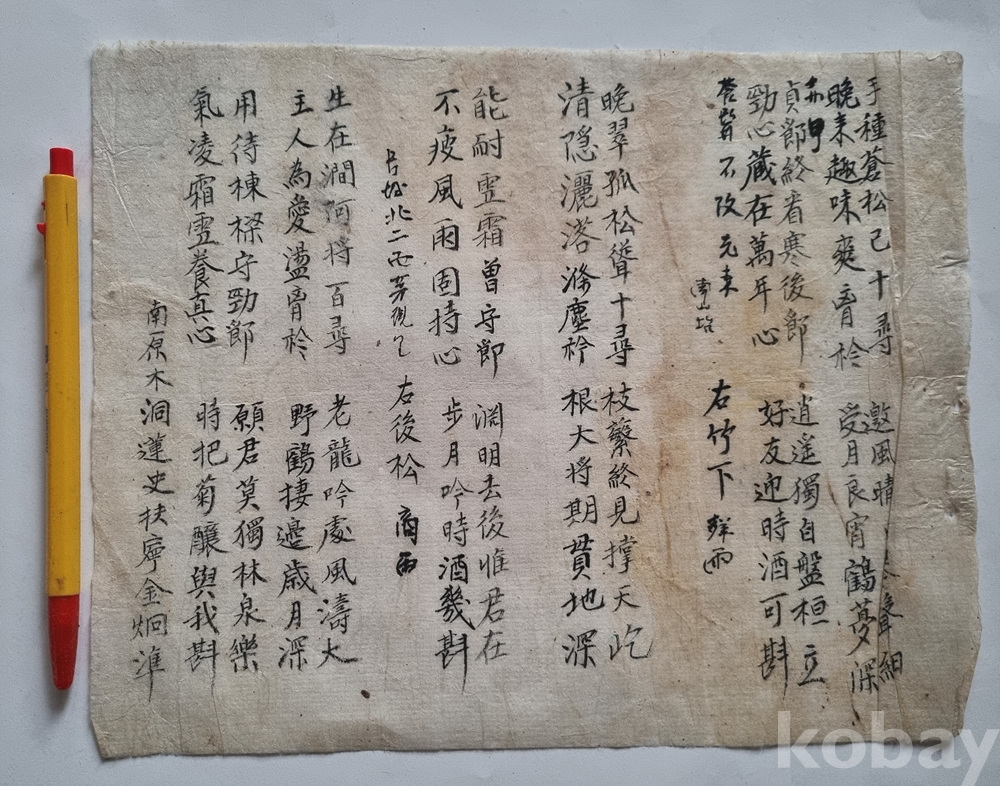 手種蒼松已十尋 邀風晴 聲細
晚來趣味爽胷衿 受月良宵鶴夢深
貞節終看寒後節 逍遥獨自盤桓立
勁心藏在萬年心 好友迎時酒可斟
不改元来
右竹下
晚翠孤松聳十尋 枝蘩終見撑天屹
清隐灑落滌塵衿 根大將期貫地深
能耐雪霜曽守節 渊明去後惟君在
不疲風雨固持心 步月吟時酒幾斟
右後松
生在澗阿將百尋 老龍吟處風濤大
主人為愛盪胷衿 野鶴捿邊歲月深
用待棟樑守勁節 願君莫獨林泉樂
氣凌霜雪養真心 時把菊釀與我斟
南原木洞蓮史扶寧金炯準
kobay